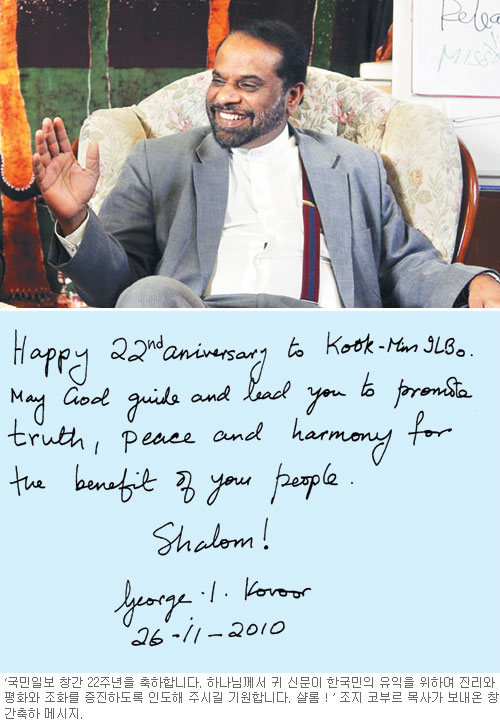 Relea
Missi
Happy 22nd aniversary to Kook-Min ILBo.
May God guide and lead you to promote
truth, peace and harmony for
the benefit of your people.
Shalom!
George . I . Kovoor
26-11-2010
'국민일보 창간 22주년을 축하합니다. 하나님께서 귀 신문이 한국민의 유익을 위하여 진리와
평화와 조화를 증진하도록 인도해 주시길 기원합니다. 샬롬 ! ' 조지 코부르 목사가 보내온 창
간축하 메시지.